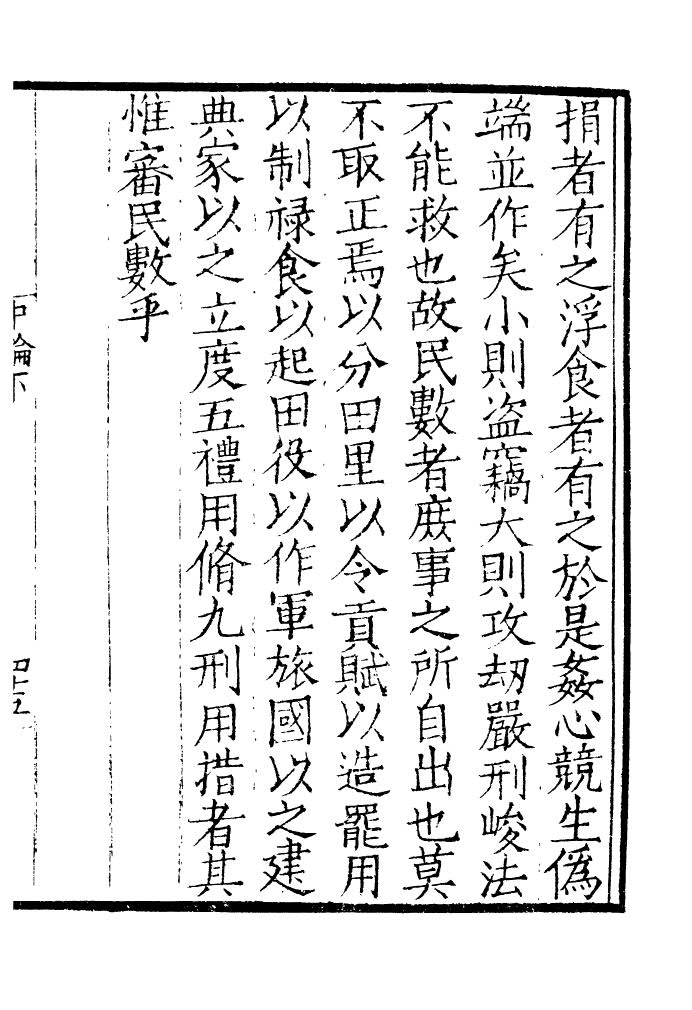 捐者有之浮食者有之於是姦心競生偽
端並作矣小則盗竊大則攻刼嚴刑峻法
不能救也故民數者庻事之所自出也莫
不取正焉以分田里以令貢賦以造罷用
以制禄食以起田役以作軍旅國以之建
典家以之立度五禮用脩九刑用措者其
惟審民數乎
中論下
四十五